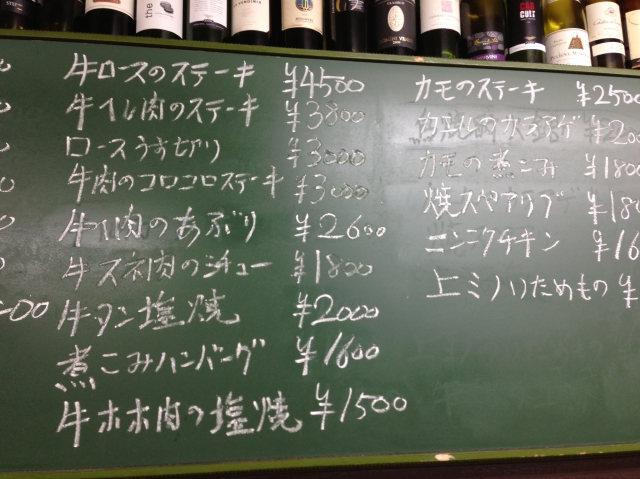 牛ロースのステーキ ¥4500
牛ヘレ肉のステーキ ¥3800
ロースうす切り ¥3000
牛肉のコロコロステーキ ¥3000
牛ヘレ肉のあぶり ¥2600
牛スネ肉のシチュー ¥1800
牛タン塩焼 ¥2000
煮こみハンバーグ ¥1600
牛ホホ肉の塩焼 ¥1500
カモのステーキ ¥2500
のカラアゲ ¥200
カモの煮こみ ¥1800
焼スペアリブ ¥180
ニンニクチキン ¥16
上ミノいためもの ¥
00
the
CULT